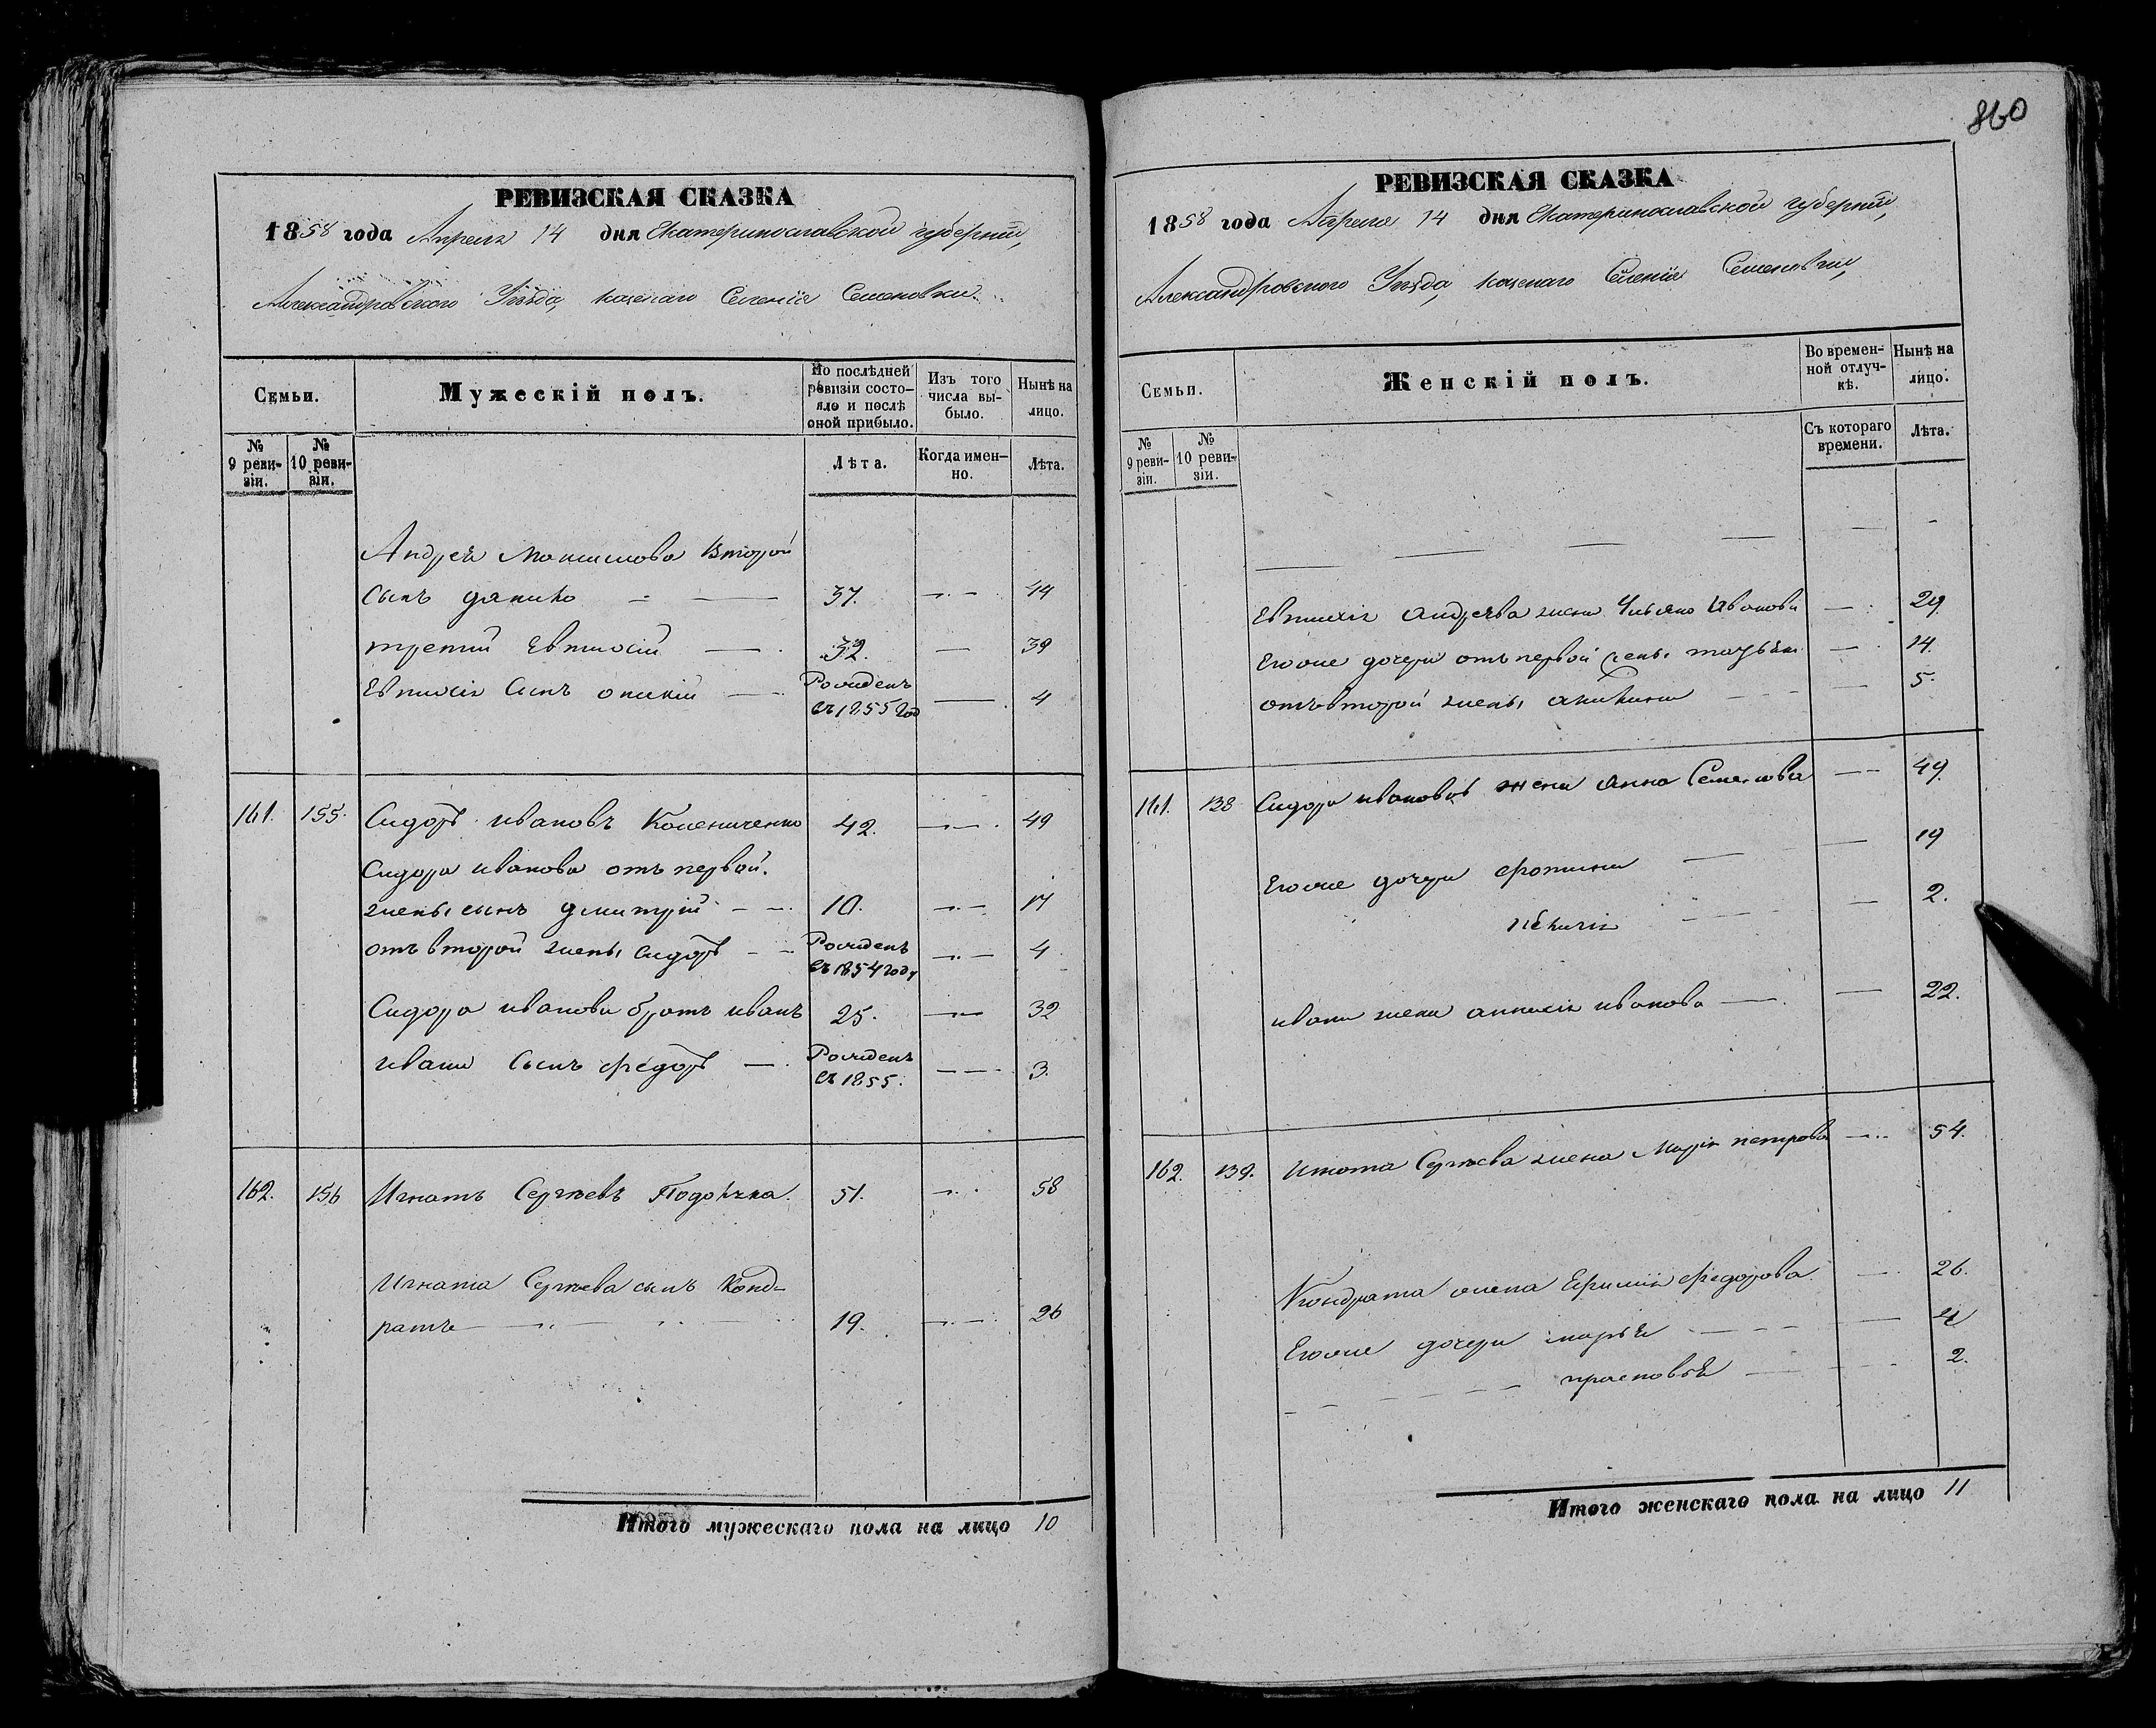 РЕВИЗСКАЯ СКАЗКА
1858 года Апреля 14 дня Екатеринославской губернии,
Александровского Уѣзда, казенаго Селенія Семеновки.
Семьи.
Мужескій полъ.
По послѣдней ревизіи состо-
яло и послѣ оной прибыло.
Изъ того числа вы-
было.
Нынѣ на лицо.
№ 9 реви-
зіи.
№ 10 реви-
зіи.
Лѣта.
Когда имен-
но.
Лѣта.
Андрея Максимова второй
сынъ 37. 44
третий Евтихій 32. 39
Евтихія Сынъ Рожденъ
въ 1855 год 4
161. 155. Сидоръ ивановъ 42. 49
Сидора иванова отъ первой
жены сынъ дмитрій 10. 17
отъ второй жены сидоръ Рожденъ
въ 1854 году 4
Сидора иванова братъ иванъ 25. 32
ивана Сынъ федоръ Рожденъ
въ 1855. 3.
162. 156 Игнатъ Сергѣевъ 51. 58
Игната Сергѣева сынъ Конд-
ратъ 19. 26
Итого мужескаго пола на лицо 10
860
РЕВИЗСКАЯ СКАЗКА
1858 года Апреля 14 дня Екатеринославской губерніи,
Александровского Уѣзда, казенаго Селенія Семеновки,
Семьи.
Женскій полъ.
Во времен-
ной отлуч-
кѣ.
Нынѣ на лицо.
№ 9 реви-
зіи.
№ 10 реви-
зіи.
Съ котораго времени.
Лѣта.
Евтихія андреева жена Иванова 29.
Егоже дочери отъ первой жены 14.
отъ второй жены 5.
161. 138 Сидора иванова жена анна Семенова 49.
Егоже дочери 19
2.
ивана жена иванова 22.
162. 139. Игната Сергѣева жена Марія петрова 54.
Кондрата жена федорова 26.
Егоже дочери марья 4
прасковья 2.
Итого женскаго пола на лицо 11